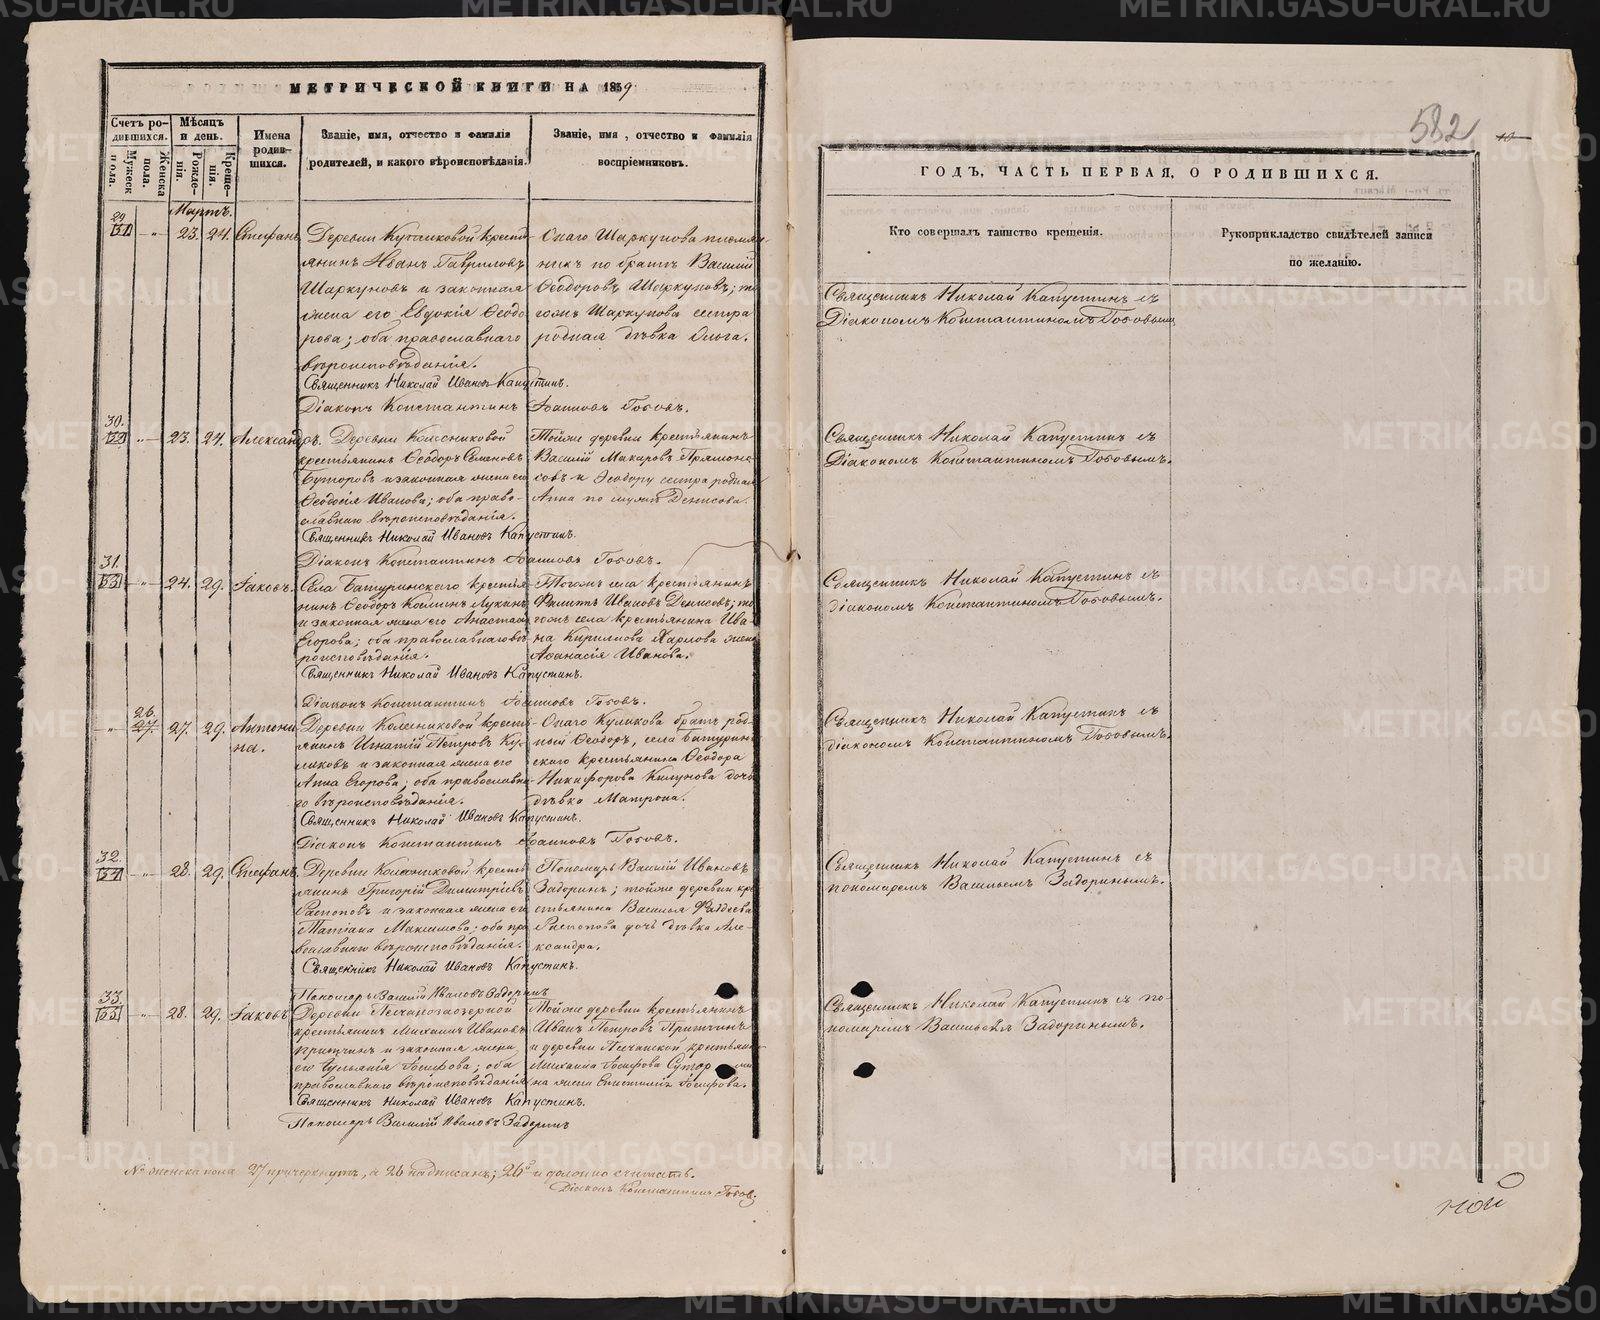 МЕТРИЧЕСКОЙ КНИГИ НА 1859
Счетъ родившихся.
Мужеска пола.
Женска пола.
Мѣсяцъ и день.
Рожденія.
Крещенія.
Имена родившихся.
Званіе, имя, отчество и фамилія родителей, и какого вѣроисповѣданія.
Званіе, имя, отчество и фамилія воспріемниковъ.
Мартъ.
29
31 -"- 23. 24. Стефанъ
Деревни крестьянинъ Иванъ Гавриловъ
Шаркуновъ и законная
жена его Евдокія Ѳеодорова; оба православнаго
вѣроисповѣданія.
Онаго Шаркунова племянникъ по братѣ Василій
Ѳеодоровъ Шаркуновъ; тогожъ Шаркунова сестра
родная дѣвка Ольга.
Священникъ Николай Ивановъ Капустинъ.
Діаконъ Константинъ Іоанновъ
30.
32 23. 24. Александръ.
Деревни Колесниковой
крестьянинъ Ѳеодоръ Семеновъ
Буторовъ и законная жена его
Ѳеодосія Иванова; оба православнаго вѣроисповѣданія.
Тойже деревни крестьянинъ
Василій Макаровъ
Ѳеодору сестра родная
Анна по мужѣ Денисова.
Священникъ Николай Ивановъ Капустинъ.
Діаконъ Константинъ Іоанновъ
31.
33 -"- 24. 29. Іаковъ.
Села Батуринскаго крестьянинъ Ѳеодоръ Лукинъ
и законная жена его Анастасія
Егорова; оба православнаго вѣроисповѣданія.
Тогожъ села крестьянинъ
Филиппъ Ивановъ Денисовъ; тогожъ села крестьянина Ивана Кирилова Карпова жена
Аѳанасія Иванова.
Священникъ Николай Ивановъ Капустинъ.
Діаконъ Константинъ Іоанновъ
26.
-"- 27. 27. 29. Антонина.
Деревни Колесниковой крестьянинъ Игнатій Петровъ Куликовъ и законная жена его
Анна Егорова; оба православнаго вѣроисповѣданія.
Онаго Куликова братъ родный Ѳеодоръ, села Батуринскаго крестьянина Ѳеодора
Никифорова дочь
дѣвка Матрона.
Священникъ Николай Ивановъ Капустинъ.
Діаконъ Константинъ Іоанновъ
32.
34 -"- 28. 29. Стефанъ.
Деревни Колесниковой крестьянинъ Григорій Димитріевъ
Распоповъ и законная жена его
Татіана Максимова; оба православнаго вѣроисповѣданія.
Пономарь Василій Ивановъ
Задоринъ; тойже деревни крестьянина Василья Фаддеева
Распопова дочь дѣвка Александра.
Священникъ Николай Ивановъ Капустинъ.
Пономарь Василій Ивановъ Задоринъ
33.
35 -"- 28. 29. Іаковъ
Деревни
крестьянинъ Михаилъ Ивановъ
и законная жена
его Іульянія Іосифова; оба
православнаго вѣроисповѣданія
Тойже деревни крестьянинъ
Иванъ Петровъ
и деревни крестьянина
Михаила Іосифова
жена Іосифова.
Священникъ Николай Ивановъ Капустинъ.
Пономарь Василій Ивановъ Задоринъ
№ женска пола 27 причеркнутъ, а 26 надписанъ; 26й и должно считать.
Діаконъ Константинъ
582
10
ГОДЪ, ЧАСТЬ ПЕРВАЯ, О РОДИВШИХСЯ.
Кто совершалъ таинство крещенія.
Рукоприкладство свидѣтелей записи
по желанію.
Священникъ Николай Капустинъ съ
Діакономъ Константиномъ
Священникъ Николай Капустинъ съ
Діакономъ Константиномъ
Священникъ Николай Капустинъ съ
діакономъ Константиномъ
Священникъ Николай Капустинъ съ
діакономъ Константиномъ
Священникъ Николай Капустинъ съ
пономаремъ Васильемъ Задоринымъ.
Священникъ Николай Капустинъ съ пономаремъ Васильемъ Задоринымъ.
METRIKI.GASO-URAL.RU